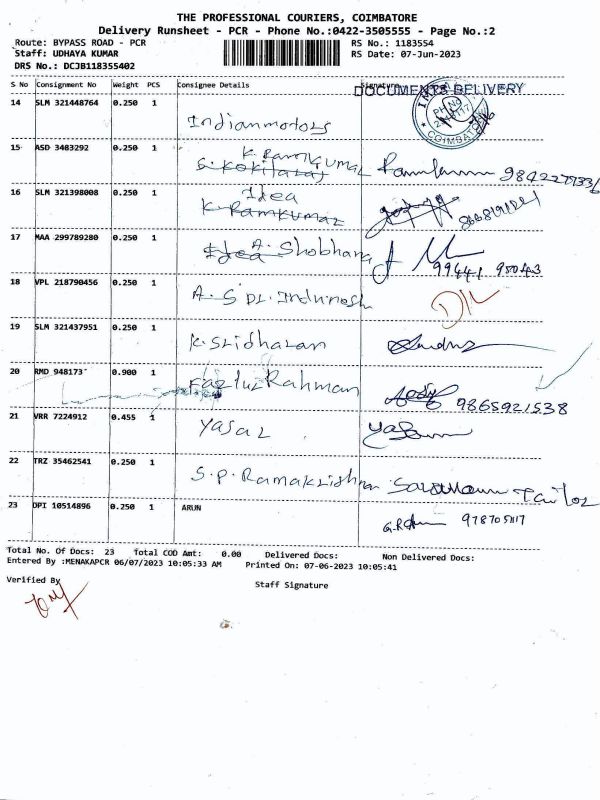 THE PROFESSIONAL COURIERS, COIMBATORE
Delivery Runsheet - PCR - Phone No.:0422-3505555 - Page No.:2
Route: BYPASS ROAD - PCR RS No.: 1183554
Staff: UDHAYA KUMAR RS Date: 07-Jun-2023
DRS No.: DCJB118355402
S No Consignment No Weight PCS Consignee Details Signature
DOCUMENTS DELIVERY
14 SLM 321448764 0.250 1 Indianmotors
COIMBATORE
15 ASD 3483292 0.250 1 K. Ramkumar
S. Kokilaraj
16 SLM 321398008 0.250 1 Idea
K. Ramkumar
17 MAA 299789280 0.250 1 Idea A. Shobhana 99441 95043
18 VPL 218790456 0.250 1 D/L
19 SLM 321437951 0.250 1 K. Sridharan
20 RMD 948173 0.900 1 Fazlur Rahman 9865921538
21 VRR 7224912 0.455 1 Yasar
22 TRZ 35462541 0.250 1 S.P. Ramakrishnan Tailor
23 DPI 10514896 0.250 1 ARUN
Total No. Of Docs: 23 Total COD Amt: 0.00 Delivered Docs: Non Delivered Docs:
Entered By :MENAKAPCR 06/07/2023 10:05:33 AM Printed On: 07-06-2023 10:05:41
Verified By Staff Signature